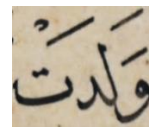 وَلَدَتْ